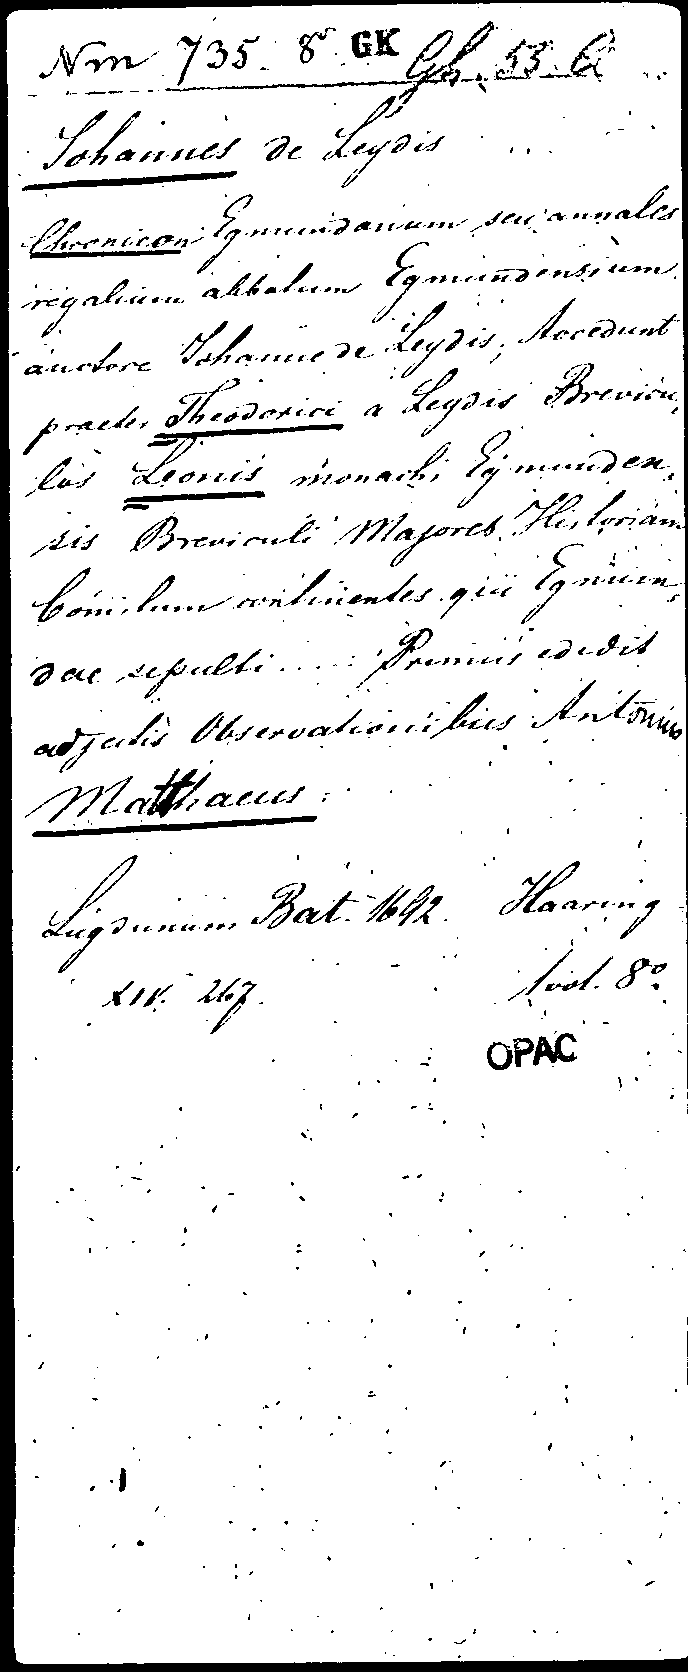 Nm 735. 8° GK Gh. 55. a
Johannes de Leydis
Chronicon Egmundanum seu annales
regalium abbatum Egmundensium
auctore Johanne de Leydis, Accedunt
praeter Theodorici a Leydis Brevicu,
los Leonis monachi Egmunden,
sis Breviculi Majores Historiam
Comitum continentes qui Egmun,
dae sepulti .... Primus edidit
adjectis Observationibus Antonius
Matthaeus.
Lugdunum Bat. 1692. Haaring
XIV. 267. 1 vol. 8°
OPAC